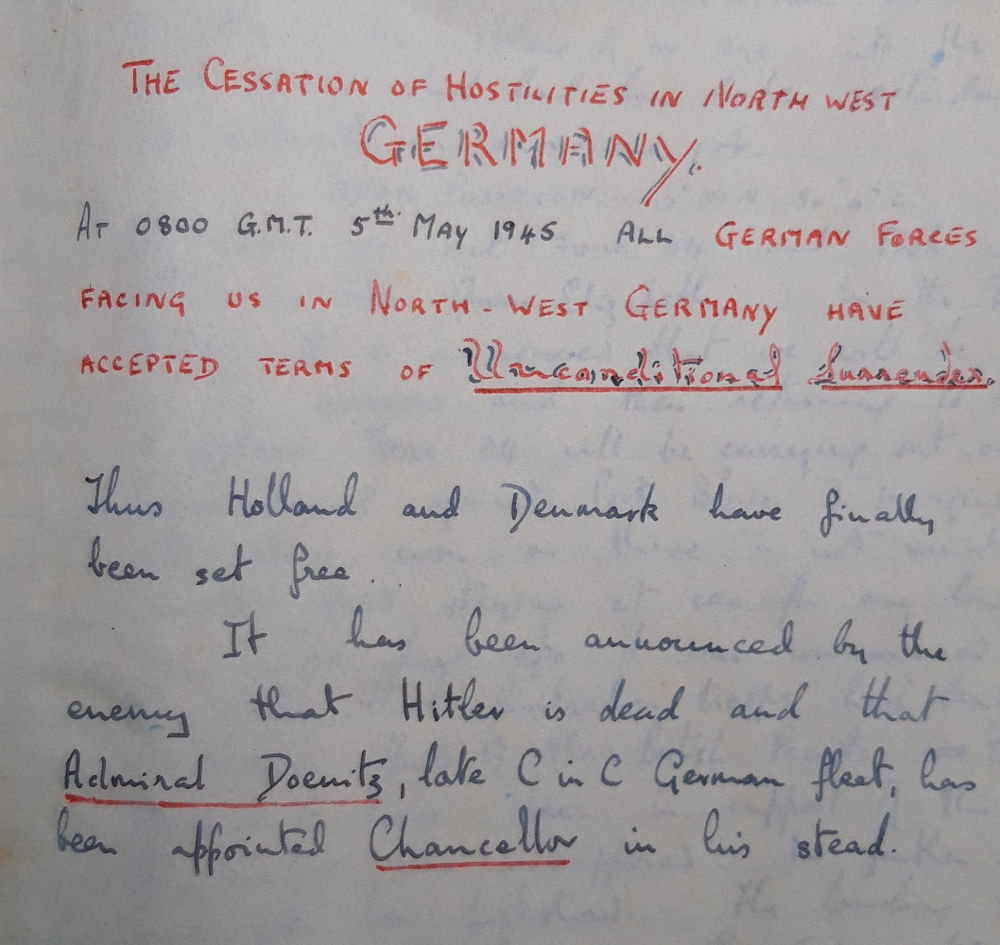 THE CESSATION OF HOSTILITIES IN NORTH WEST
GERMANY.
AT 0800 G.M.T. 5th MAY 1945 ALL GERMAN FORCES
FACING US IN NORTH-WEST GERMANY HAVE
ACCEPTED TERMS OF Unconditional Surrender.
Thus Holland and Denmark have finally
been set free.
It has been announced by the
enemy that Hitler is dead and that
Admiral Doenitz, late C in C German fleet, has
been appointed Chancellor in his stead.